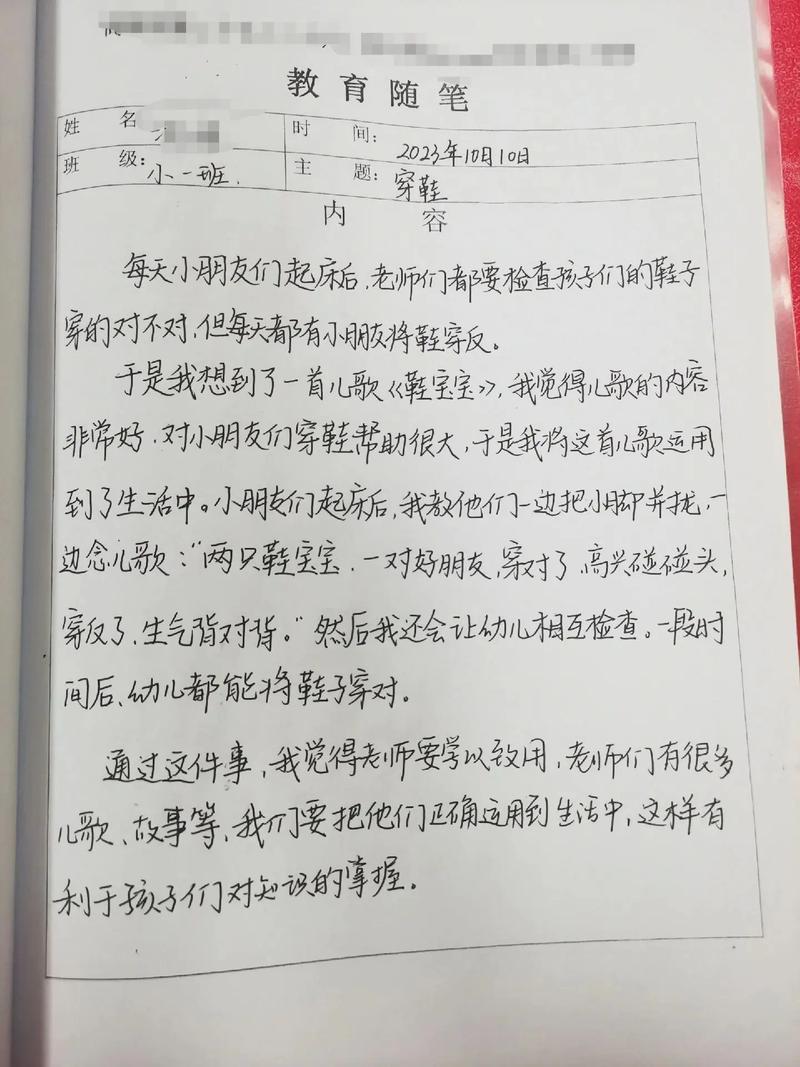 教育随笔
姓 名
时 间: 2023年10月10日
班 级: 小一班.
主 题: 穿鞋
内 容
每天小朋友们起床后,老师们都要检查孩子们的鞋子
穿的对不对,但每天都有小朋友将鞋穿反。
于是我想到了一首儿歌《鞋宝宝》,我觉得儿歌的内容
非常好,对小朋友们穿鞋帮助很大,于是我将这首儿歌运用
到了生活中。小朋友们起床后,我教他们一边把小脚并拢,一
边念儿歌:"两只鞋宝宝,一对好朋友,穿对了、高兴碰碰头,
穿反了、生气背对背。"然后我还会让幼儿相互检查。一段时
间后、幼儿都能将鞋子穿对。
通过这件事,我觉得老师要学以致用,老师们有很多
儿歌、故事等,我们要把他们正确运用到生活中,这样有
利于孩子们对知识的掌握。